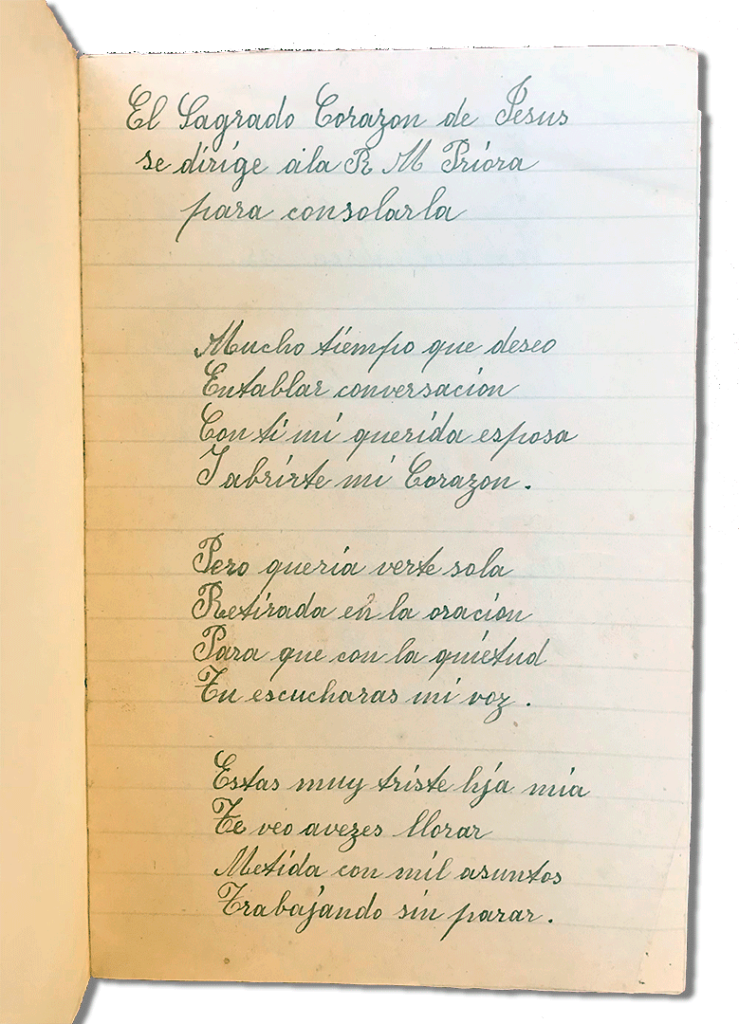 El Sagrado Corazon de Jesus
se dirige a la R M Priora
para consolarla
Mucho tiempo que deseo
Entablar conversacion
Con ti mi querida esposa
I abrirte mi Corazon.
Pero queria verte sola
Retirada en la oracion
Para que con la quietud
Tu escucharas mi voz.
Estas muy triste hja mia
Te veo avezes llorar
Metida con mil asuntos
Trabajando sin parar.